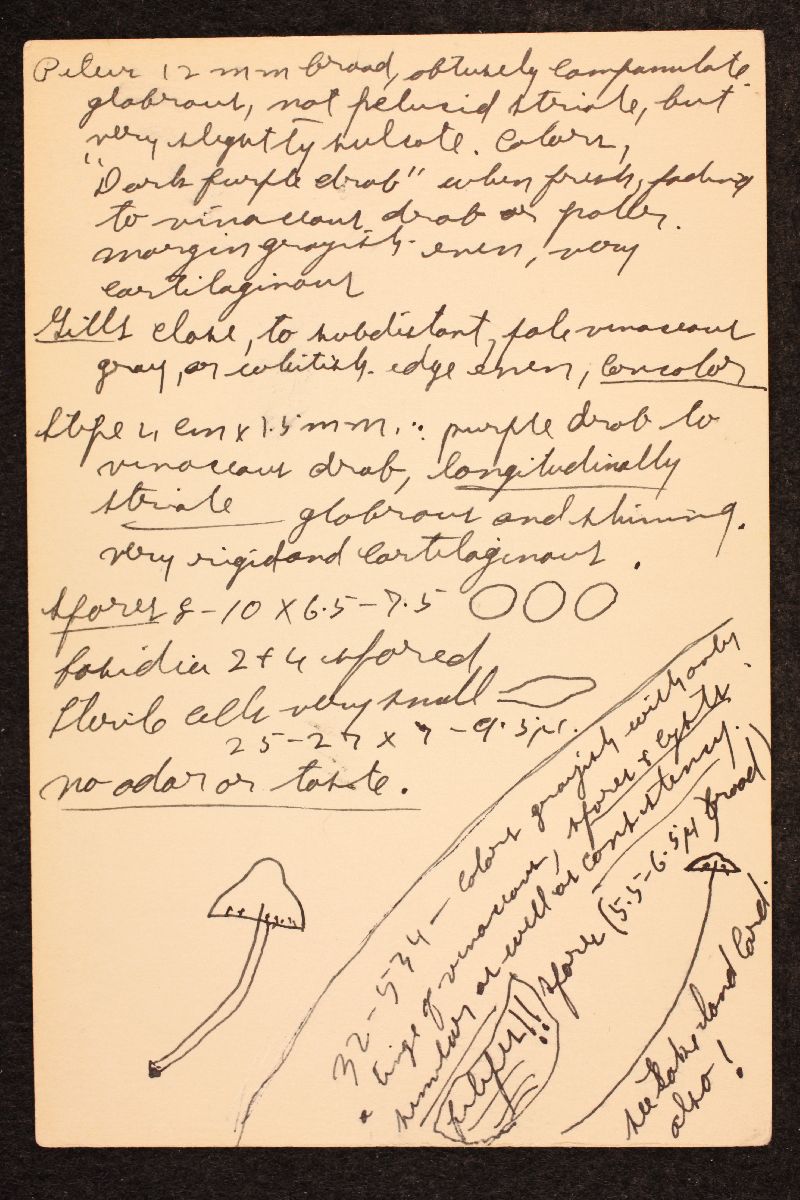 Pileus 12 mm broad, obtusely campanulate
glabrous, not pelucid striate, but
very slightly sulcate. Colors,
"Dark purple drab" when fresh, fading
to vinaceous drab or paler.
margin grayish. even, very
cartilaginous
Gills close, to subdistant, pale vinaceous
gray, or whitish. edge even, concolor
Stipe 4 cm x 1.5 mm. purple drab to
vinaceous drab, longitudinally
striate glabrous and shining.
very rigid and cartilaginous.
Spores 8-10 X 6.5-7.5
basidia 2+4 spored
Sterile cells very small
25-27 x 7-9.5µ.
no odor or taste.
32-534 - colors grayish with only
a tinge of vinaceous, spores + cystidia
similar as well as consistency.
filipes!! spores (5.5-6.5µ broad)
see Lakeland Card
also!